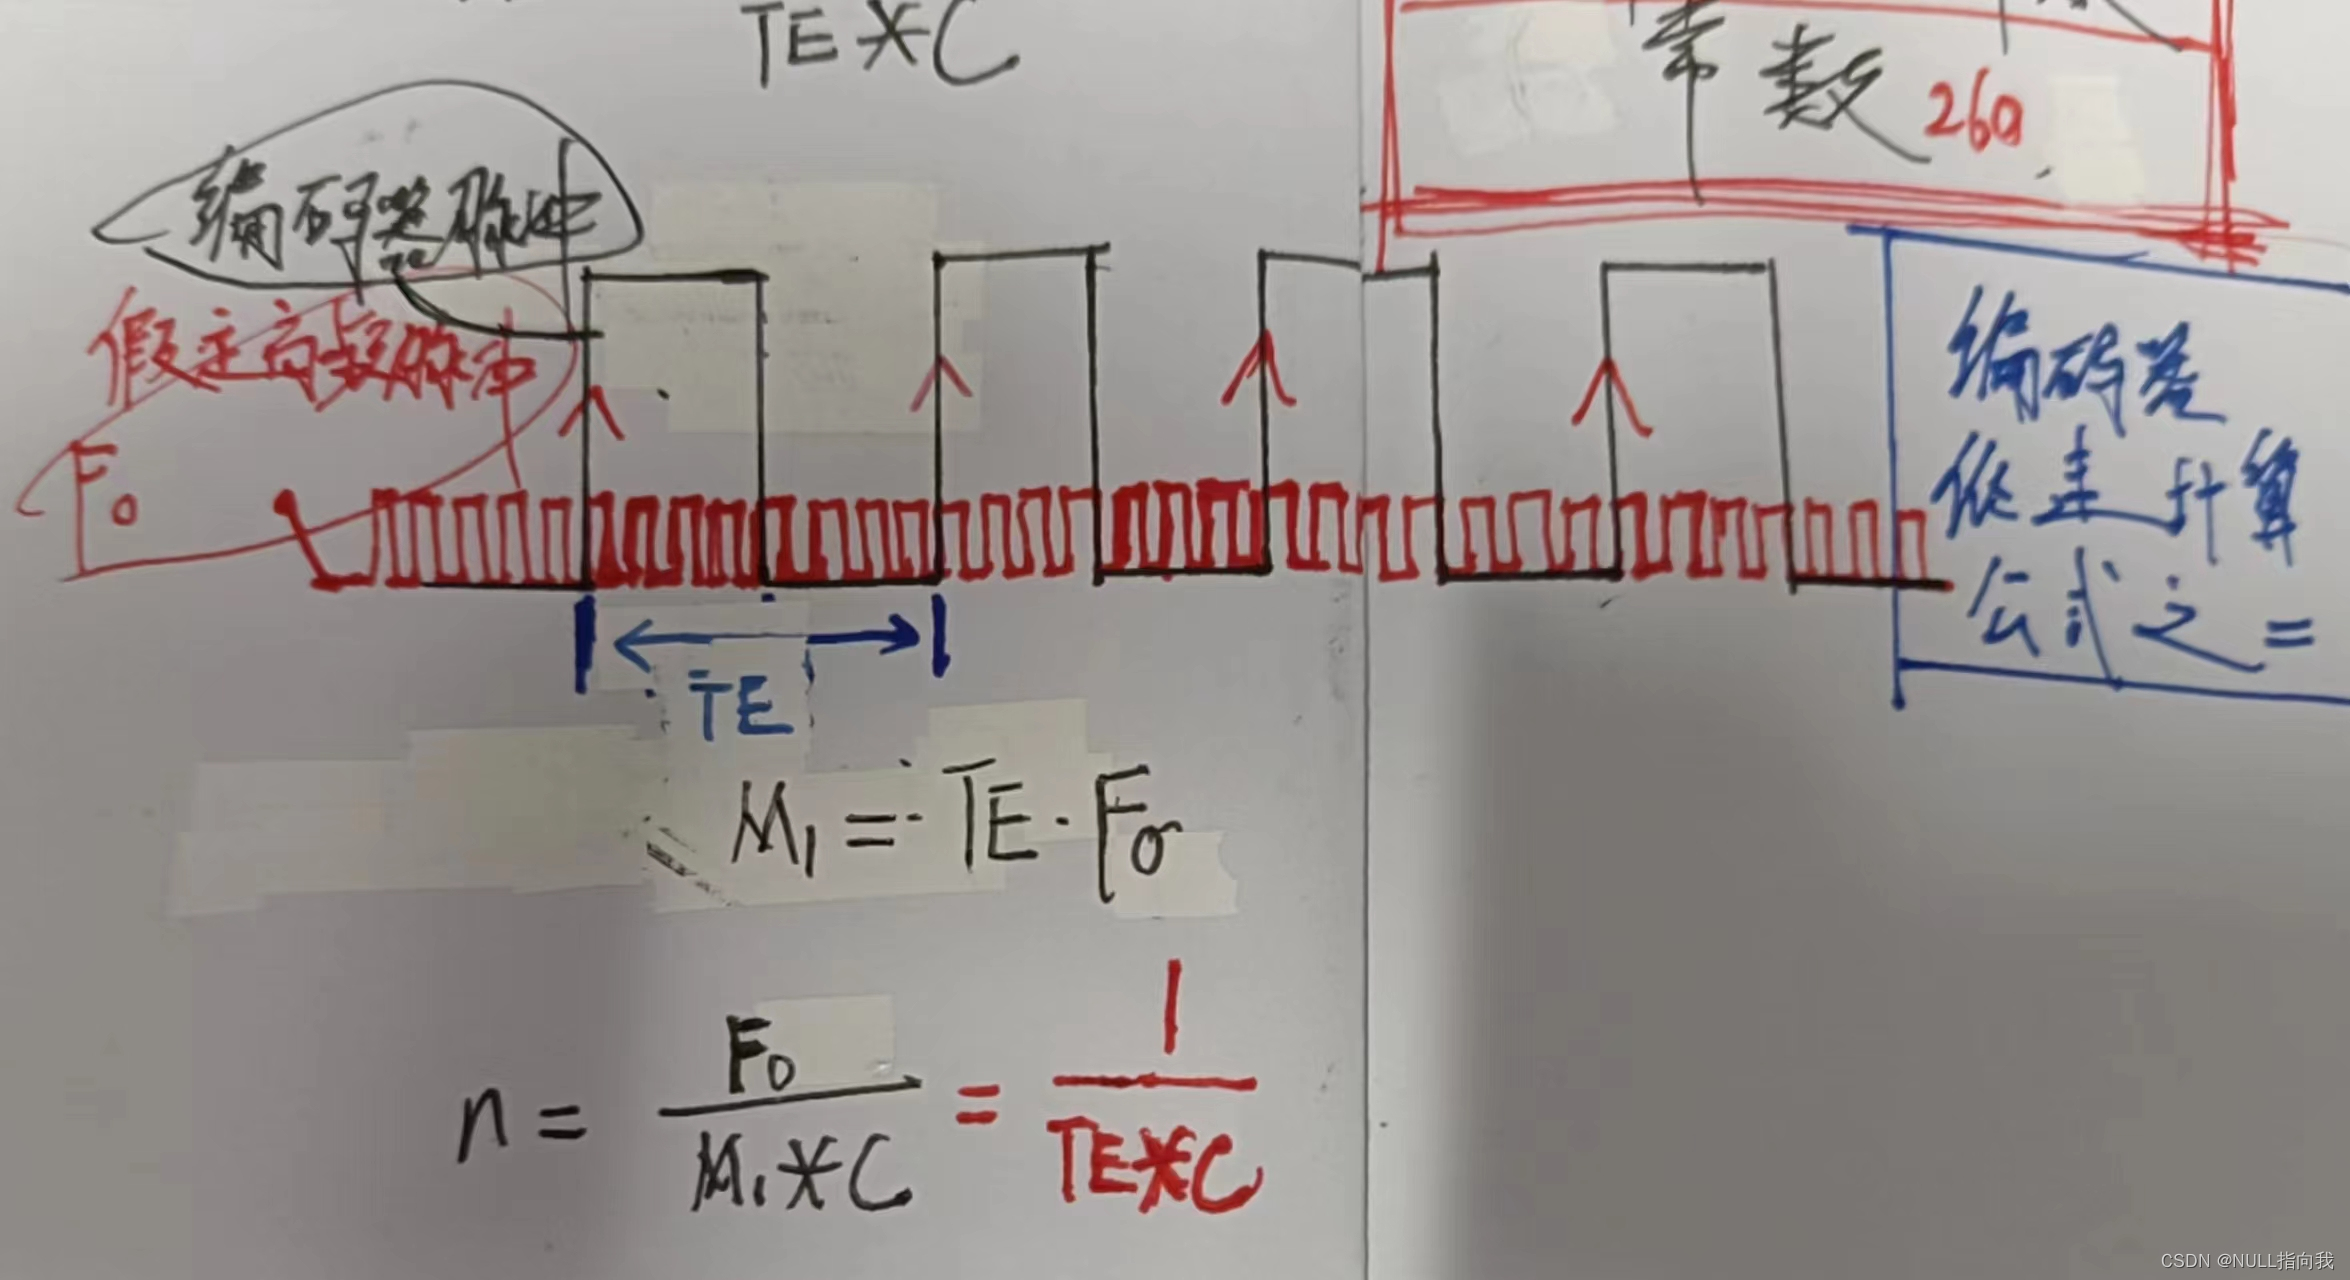 TE*C
常数 260
编码器脉冲
假定高频脉冲
F0
编码器
低速计算
公式之=
TE
M1 = TE · F0
n = F0 / M1*C = 1 / TE*C
CSDN @NULL指向我